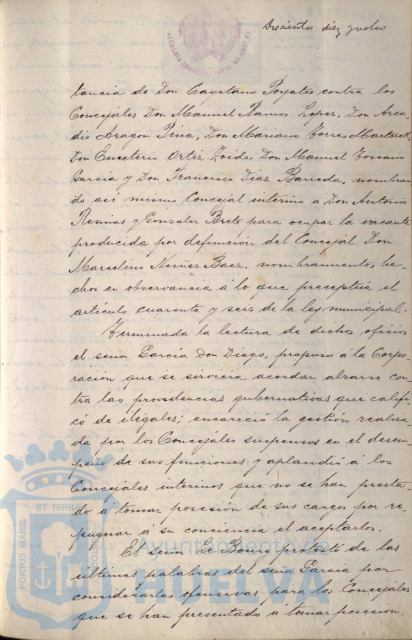 Doscientos diez y ocho
tancia de Don Cayetano Poyatos contra los
Concejales Don Manuel Ramos Lopez, Don Arca-
dio Aragon Pina, Don Mariano Torres Martinez,
Don Emeterio Ortiz Zoide, Don Manuel Toscano
Garcia y Don Francisco Diaz Barreda, nombran-
do asi mismo Concejal interino a Don Antonio
y Gonzalez Brito para ocupar la vacante
producida por defunción del Concejal Don
Marcelino Nuñez Baez, nombramiento, he-
chos en observancia á lo que preceptúa el
artículo cuarenta y seis de la ley municipal.
Terminada la lectura de dichos oficios
el señor Garcia Don Diego, propuso á la Corpo-
ración que se sirviera acordar alzarse con-
tra las providencias gubernativas que califi-
có de ilegales; encareció la gestión realiza-
da por los Concejales suspensos en el desem-
peño de sus funciones y aplaudió a los
Concejales interinos que no se han presta-
do a tomar posesión de sus cargos por re-
pugnar a su conciencia el aceptarlos.
El señor Le Bourg protestó de las
ultimas palabras del señor Garcia por
considerarlas ofensivas para los Concejales
que se han presentado á tomar posesion
PORTUS MARIS
ET TERRAE
Ayuntamiento de
HUELVA